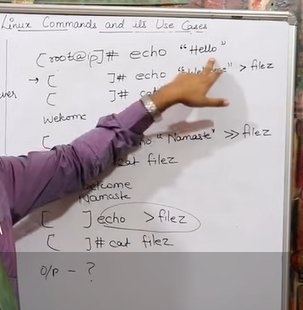 Linux Commands and its Use Cases
[root@ip]# echo "Hello"
→ [ ]# echo " > filez
[ ]# cat
ver
Welcome
[ "Namaste" >> filez
cat filez
Welcome
Namaste
[ ] echo > filez
[ ]# cat filez
O/P - ?